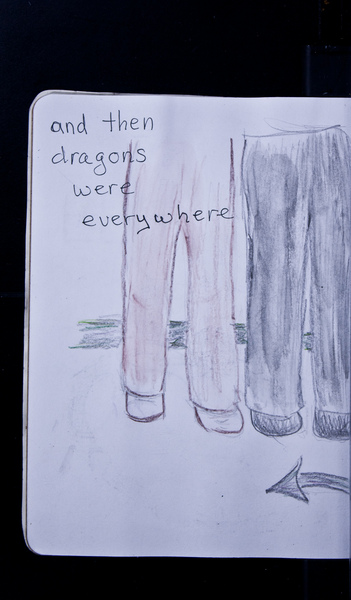 and then
dragons
were
everywhere